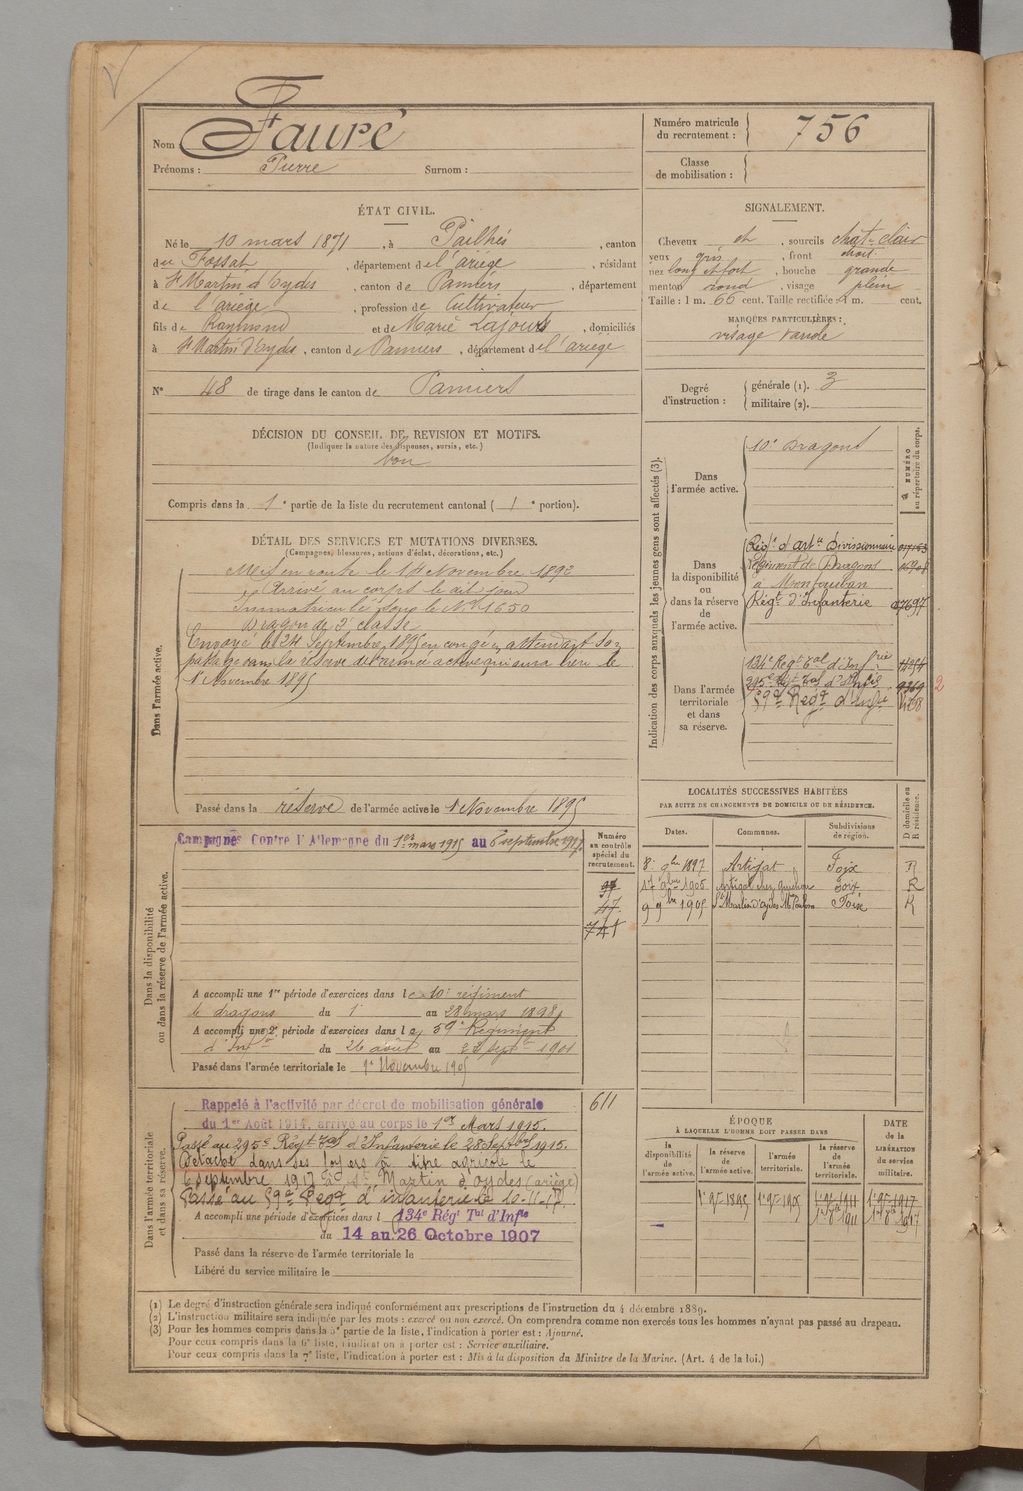 Nom : Fauré
Prénoms : Pierre Surnom :
Numéro matricule du recrutement : 756
Classe de mobilisation :
ÉTAT CIVIL.
Né le 10 mars 1871, à Pailhés, canton
du Fossat, département de l'ariège, résidant
à St Martin d'Oydes, canton de Pamiers, département
de l'ariège, profession de Cultivateur
fils de Raymond et de Marie Lajous, domiciliés
à St Martin d'Oydes, canton de Pamiers, département de l'ariège
N° 48 de tirage dans le canton de Pamiers
SIGNALEMENT.
Cheveux et, sourcils chât-clair
yeux gris, front étroit
nez long et fort, bouche grande
menton rond, visage plein
Taille : 1 m. 66 cent. Taille rectifiée : 1 m. cent.
MARQUES PARTICULIÈRES :
visage
Degré d'instruction : générale (1). 3
militaire (2).
DÉCISION DU CONSEIL DE REVISION ET MOTIFS.
(Indiquer la nature des dispenses, sursis, etc.)
bon
Compris dans la 1e partie de la liste du recrutement cantonal (1e portion).
DÉTAIL DES SERVICES ET MUTATIONS DIVERSES.
(Campagnes, blessures, actions d'éclat, décorations, etc.)
Dans l'armée active.
Mis en route le 14 Novembre 1892
Arrivé au corps le dit jour
Immatriculé sous le N° 1650
Dragon de 2e classe
Envoyé le 24 Septembre 1895 en congé en attendant son
passage dans la réserve de l'armée active qui aura lieu le
1r Novembre 1895
Passé dans la réserve de l'armée active le 1r Novembre 1895
Indication des corps auxquels les jeunes gens sont affectés (3).
NUMÉRO au répertoire du corps.
Dans l'armée active.
10e Dragons
Dans la disponibilité ou dans la réserve de l'armée active.
Régt d'arte Divisionnaire
Régiment de Dragons
à Montauban
Régt d'Infanterie 07697
Dans l'armée territoriale et dans sa réserve.
134e Régt Tal d'Infrie
295e Régt Tal d'Infie 9369 2
59e Régt d'Infie
LOCALITÉS SUCCESSIVES HABITÉES
PAR SUITE DE CHANGEMENTS DE DOMICILE OU DE RÉSIDENCE.
D domicile ou R résidence.
Dates. Communes. Subdivisions de région.
8 9bre 1897 Artigat Foix R
17 1905 Artigat chez Foix R
9 9bre 1905 St Martin d'oydes Foix R
Dans la disponibilité ou dans la réserve de l'armée active.
Campagnes Contre l'Allemagne du 1er mars 1915 au 6 septembre 1917
Numéro au contrôle spécial du recrutement.
47
741
A accompli une 1re période d'exercices dans le 10e régiment
de dragons du 1r au 28 mars 1898
A accompli une 2e période d'exercices dans le 59e Régiment
d'Infie du 26 août au 22 Septre 1901
Passé dans l'armée territoriale le 1er Novembre 1905
Dans l'armée territoriale et dans sa réserve.
Rappelé à l'activité par décret de mobilisation générale
du 1er Août 1914, arrivé au corps le 1er Mars 1915.
611
Passé au 295e Régt Tal d'Infanterie le 28 Septbre 1915.
Détaché dans ses foyers à titre agricole le
6 septembre 1917 à St Martin d'Oydes (ariège)
Passé au 59e Régt d'infanterie le 10-11-17
A accompli une période d'exercices dans l 134e Régt Tal d'Infie
du 14 au 26 Octobre 1907
Passé dans la réserve de l'armée territoriale le
Libéré du service militaire le
ÉPOQUE
À LAQUELLE L'HOMME DOIT PASSER DANS
la disponibilité de l'armée active.
la réserve de l'armée active.
l'armée territoriale.
la réserve de l'armée territoriale.
DATE de la LIBÉRATION du service militaire.
1r 9bre 1895 1r 9bre 1905 1r 9bre 1911 1r 9bre 1917
(1) Le degré d'instruction générale sera indiqué conformément aux prescriptions de l'instruction du 4 décembre 1889.
(2) L'instruction militaire sera indiquée par les mots : exercé ou non exercé. On comprendra comme non exercés tous les hommes n'ayant pas passé au drapeau.
(3) Pour les hommes compris dans la 5e partie de la liste, l'indication à porter est : Ajourné.
Pour ceux compris dans la 6e liste, l'indication à porter est : Service auxiliaire.
Pour ceux compris dans la 7e liste, l'indication à porter est : Mis à la disposition du Ministre de la Marine. (Art. 4 de la loi.)